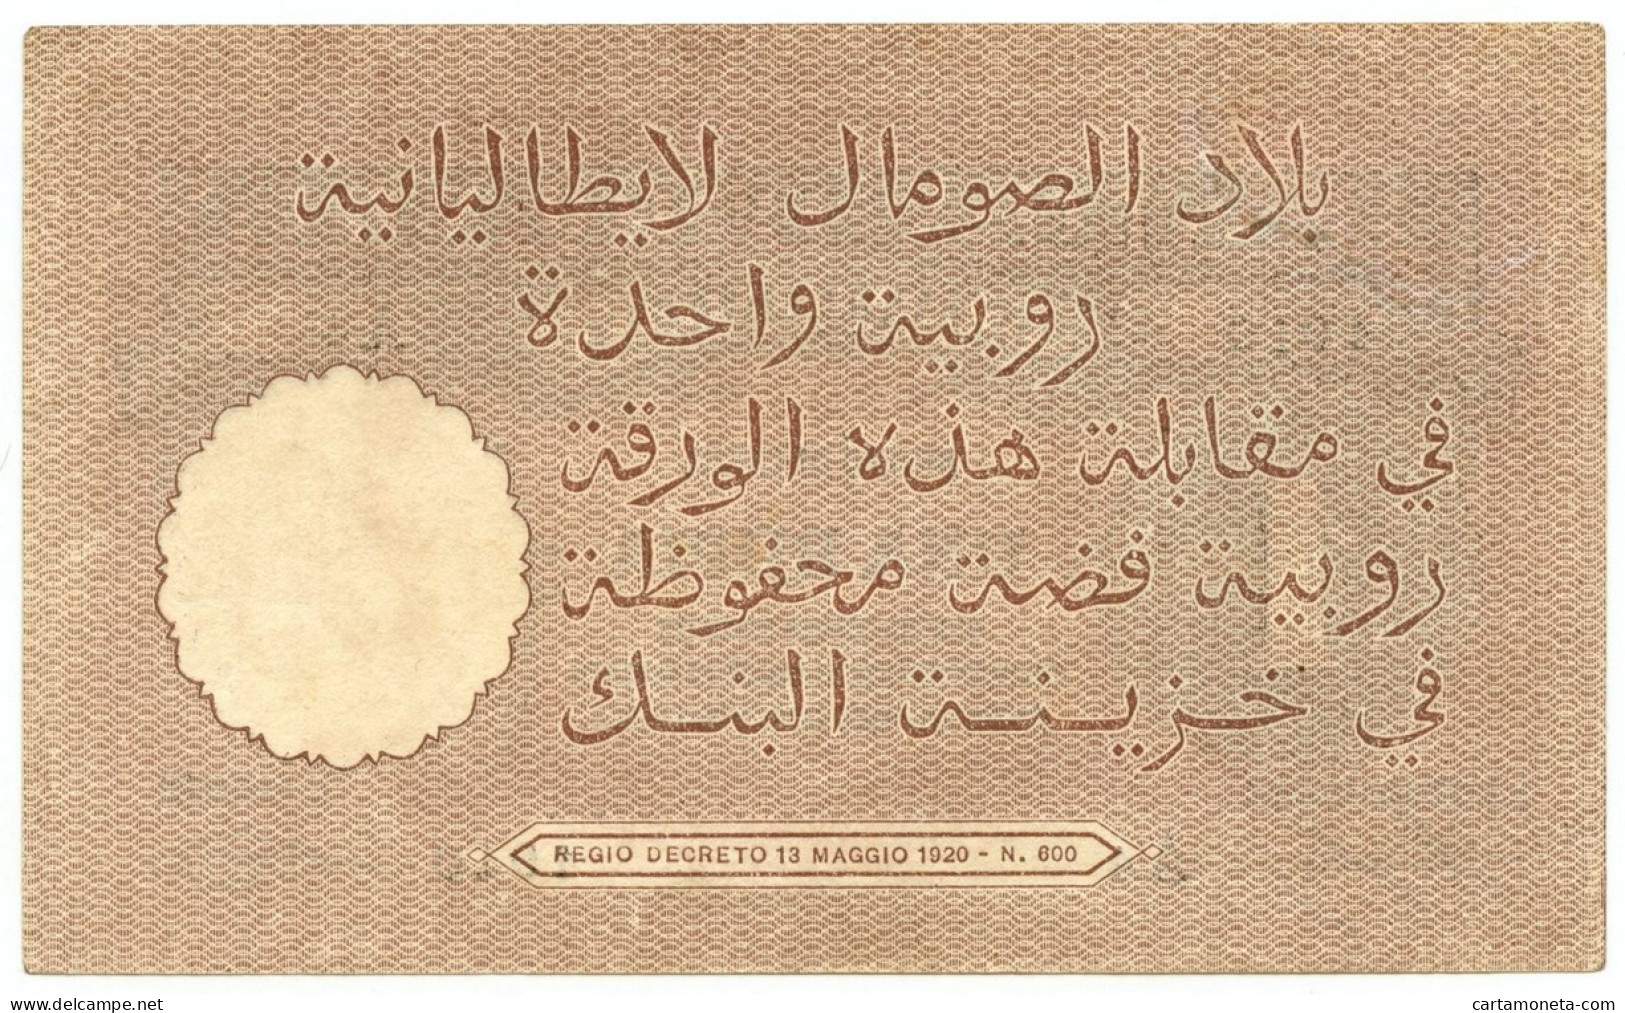 بلاد الصومال لايطاليانية
روبية واحدة
في مقابلة هذه الورقة
روبية فضة محفوظة
في خزينة البنك
REGIO DECRETO 13 MAGGIO 1920 - N. 600
www.delcampe.net
cartamoneta-com